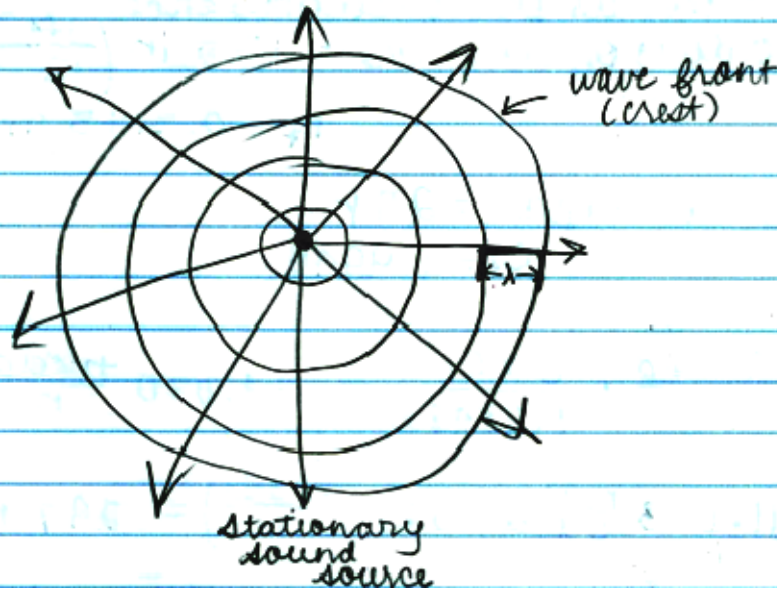 wave front
(crest)
λ
stationary
sound
source